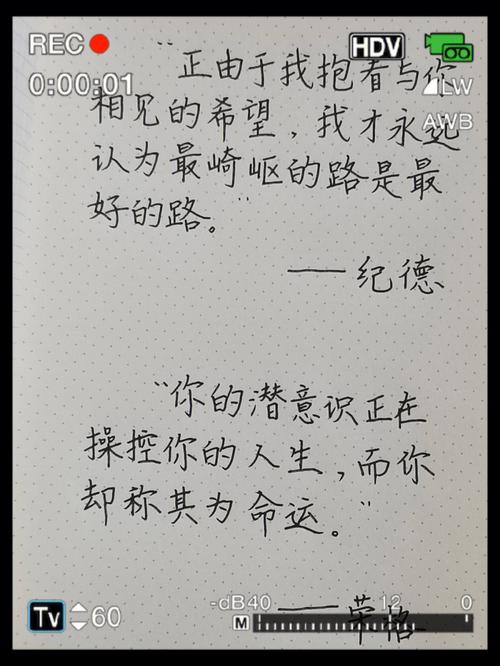 REC
HDV
0:00:01
LW
AWB
"正由于我抱看与你
相见的希望，我才永远
认为最崎岖的路是最
好的路。"
——纪德
"你的潜意识正在
操控你的人生，而你
却称其为命运。"
——荣格
Tv 60
-dB40 12 0
M